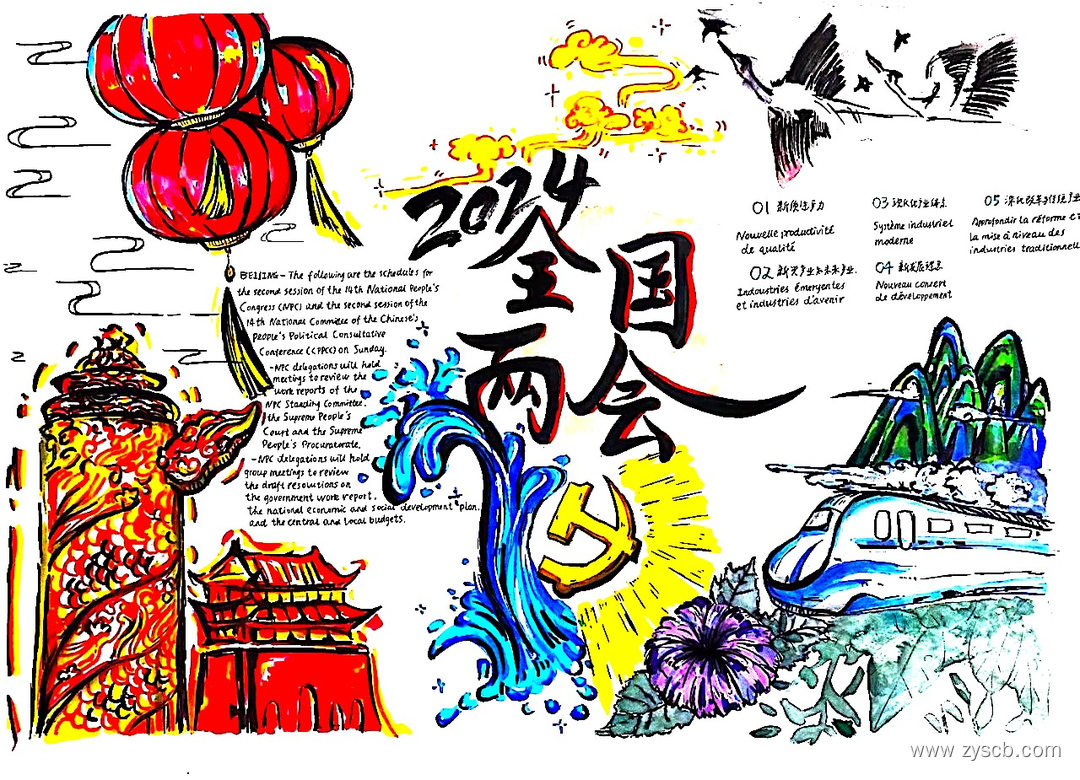 2024
全国
两会
BEIJING - The following are the schedules for
the second session of the 14th National People's
Congress (NPC) and the second session of the
14th National Committee of the Chinese's
People's Political Consultative
Conference (CPPCC) on Sunday.
-NPC delegations will hold
meetings to review the
work reports of the
NPC Standing Committee,
the Supreme People's
Court and the Supreme
People's Procuratorate.
-NPC delegations will hold
group meetings to review
the draft resolutions on
the government work report,
the national economic and social development plan,
and the central and local budgets.
01 新质生产力
Nouvelle productivité
de qualité
02 新兴产业和未来产业
Indoustries émergentes
et industries d'avenir
03 现代化产业体系
Système industriel
moderne
04 新发展理念
Nouveau concept
de développement
05
Approfondir la réforme et
la mise à niveau des
industries traditionnell
www.zyscb.com